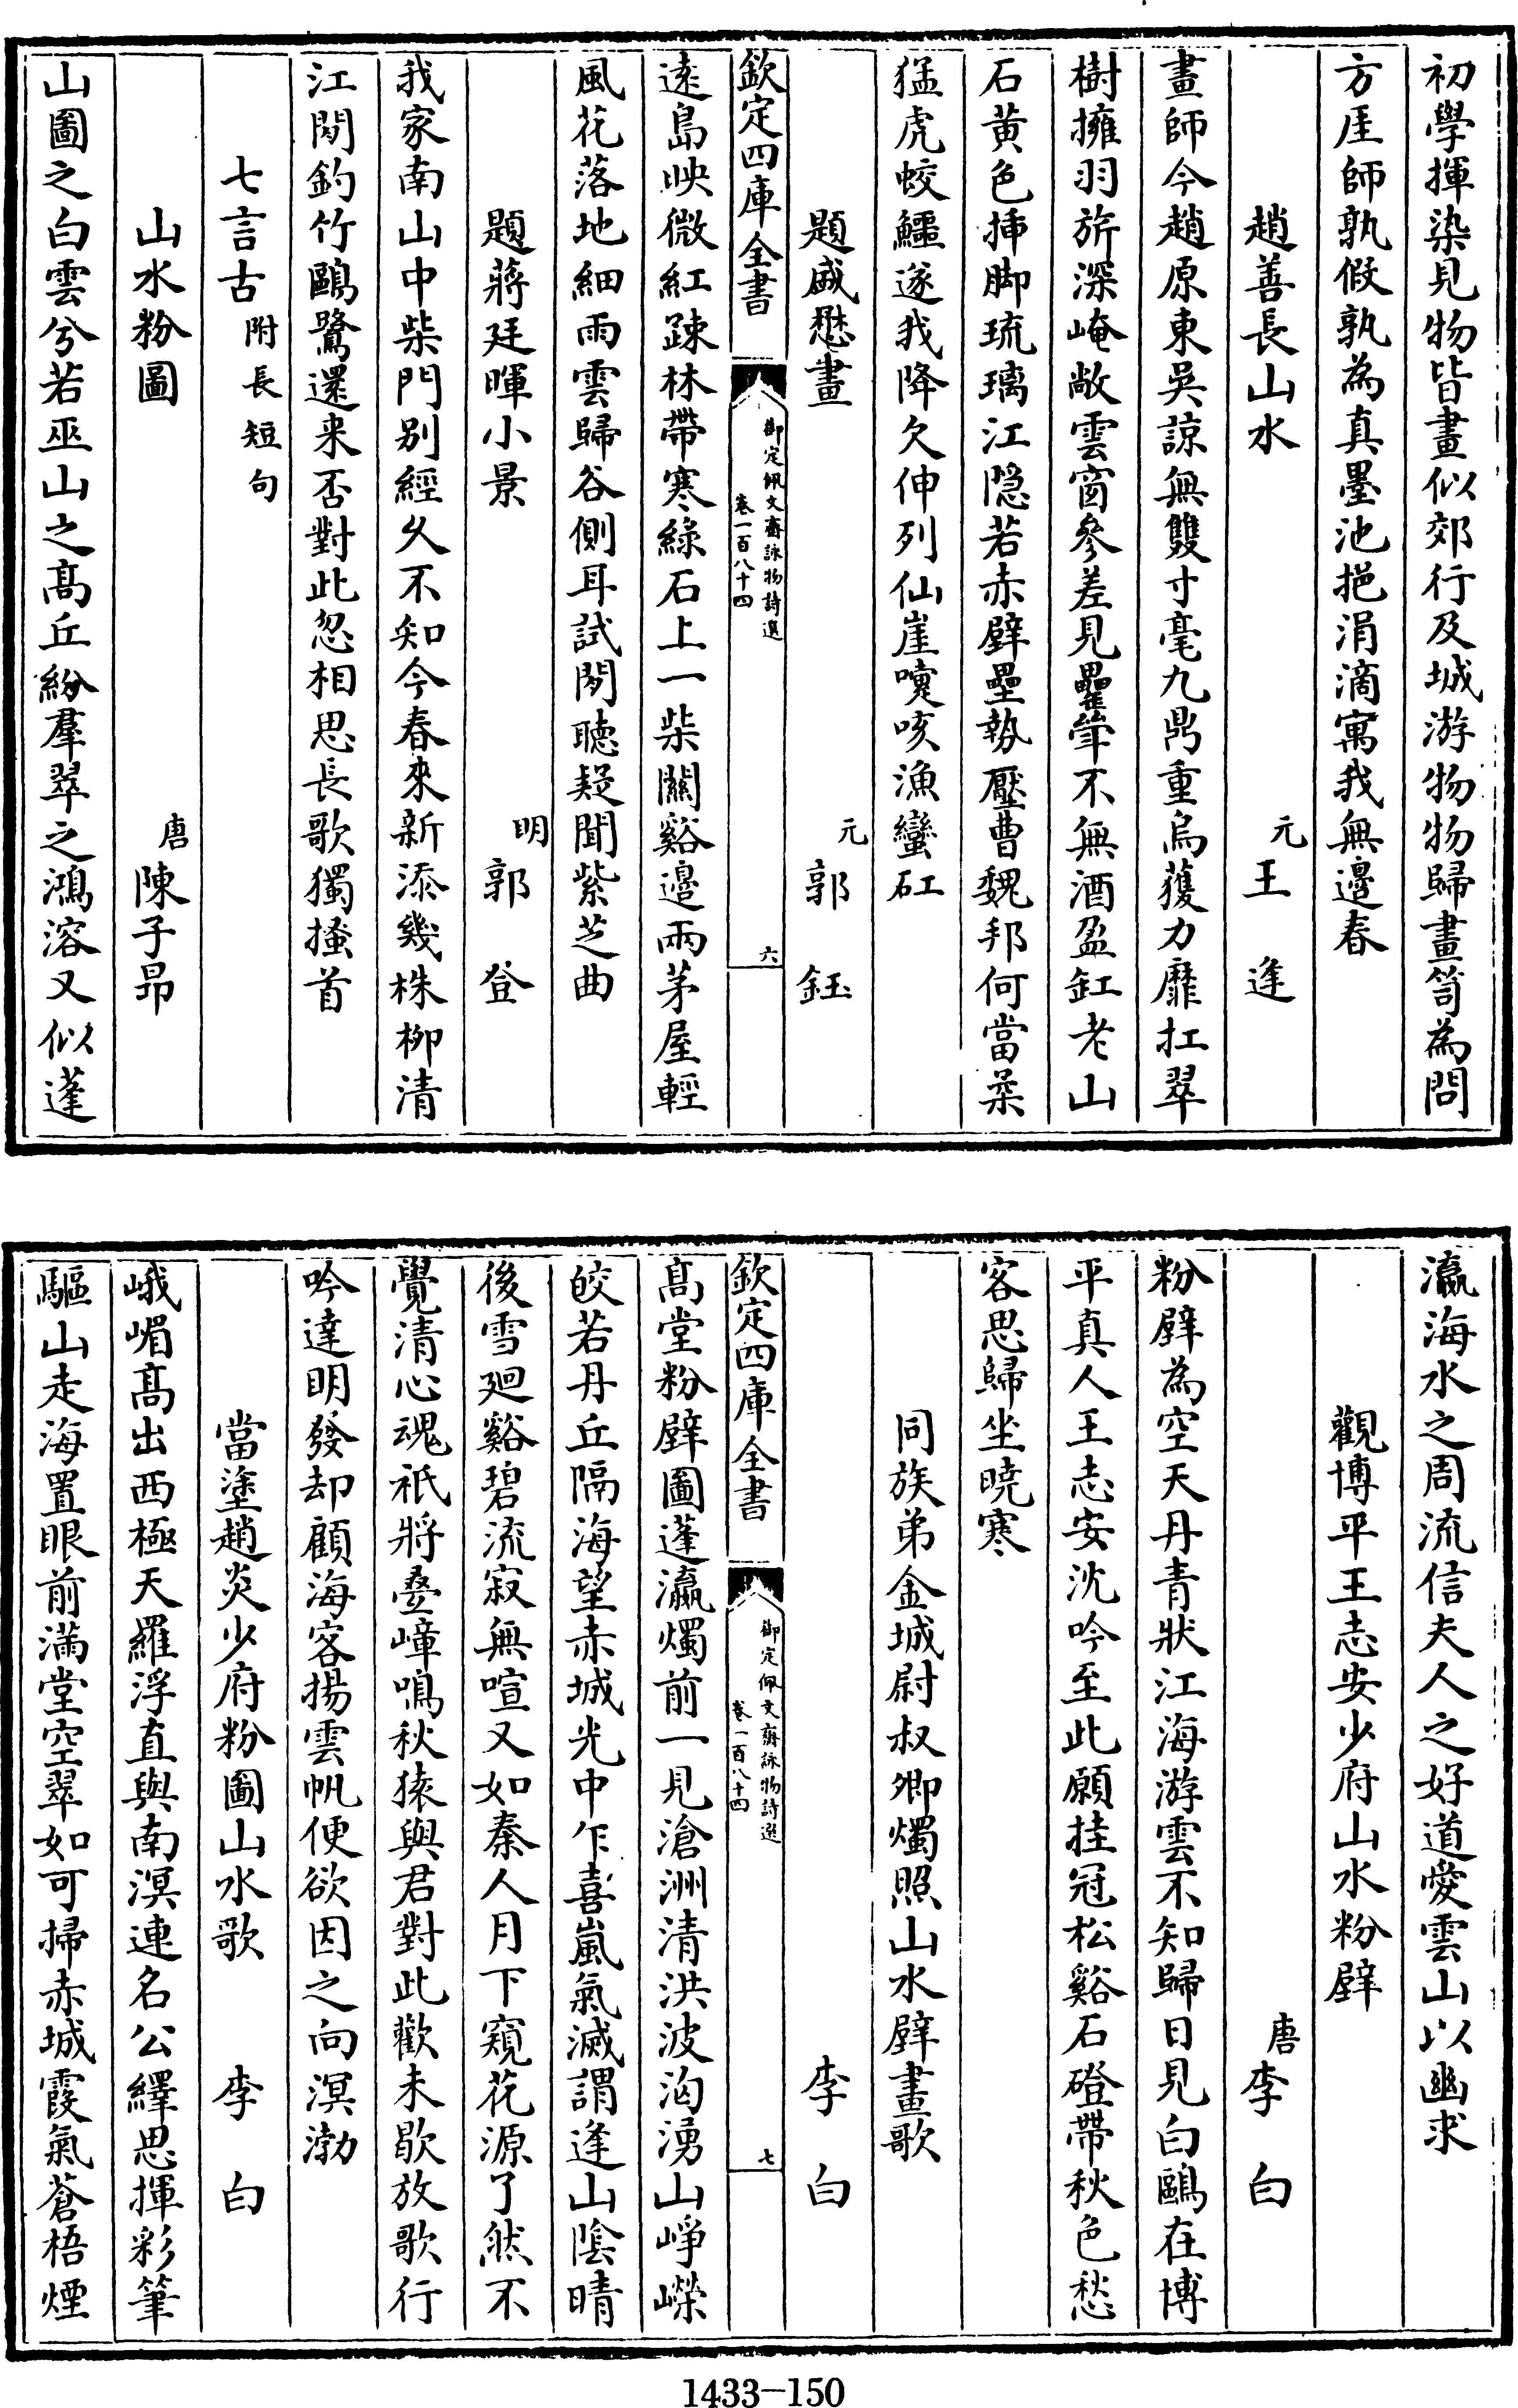 初學揮染見物皆畫似郊行及城游物物歸畫笥為問
方厓師孰假孰為真墨池挹涓滴寓我無邊春
趙善長山水 元王逢
畫師今趙原東吳諒無雙寸毫九鼎重烏獲力靡扛翠
樹擁羽旂深崦敞雲窗參差見罍犖不無酒盈缸老山
石黄色揷脚琉璃江隠若赤壁壘勢壓曹魏邦何當槊
猛虎蛟鱷遂我降欠伸列仙崖嚏咳漁蠻矼
題戚懋畫 元郭鈺
欽定四庫全書 御定佩文齋詠物詩選 卷一百八十四 六
遠島映微紅疎林帶寒綠石上一柴關谿邊兩茅屋輕
風花落地細雨雲歸谷側耳試閒聽疑聞紫芝曲
題蔣廷暉小景 明郭登
我家南山中柴門别經久不知今春來新添幾株柳清
江閒釣竹鷗鷺還来否對此忽相思長歌獨搔首
七言古附長短句
山水粉圖 唐陳子昂
山圖之白雲兮若巫山之髙丘紛羣翠之鴻溶又似蓬
瀛海水之周流信夫人之好道愛雲山以幽求
觀博平王志安少府山水粉壁 唐李白
粉壁為空天丹青狀江海游雲不知歸日見白鷗在博
平真人王志安沈吟至此願挂冠松谿石磴帶秋色愁
客思歸坐曉寒
同族弟金城尉叔卿燭照山水壁畫歌
李白
欽定四庫全書 御定佩文齋詠物詩選 卷一百八十四 七
髙堂粉壁圖蓬瀛燭前一見滄洲清洪波洶湧山崢嶸
皎若丹丘隔海望赤城光中乍喜嵐氣滅謂逢山陰晴
後雪廻谿碧流寂無喧又如秦人月下窺花源了然不
覺清心魂祇將疊嶂鳴秋猿與君對此歡未歇放歌行
吟達明發却顧海客揚雲帆便欲因之向溟渤
當塗趙炎少府粉圖山水歌 李白
峨嵋髙出西極天羅浮直與南溟連名公繹思揮彩筆
驅山走海置眼前滿堂空翠如可掃赤城霞氣蒼梧煙
1433-150